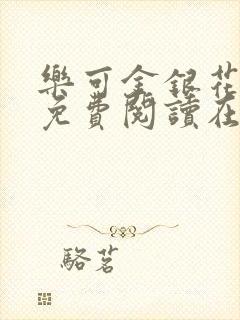 樂可金銀花
免費閱讀在
駱茗